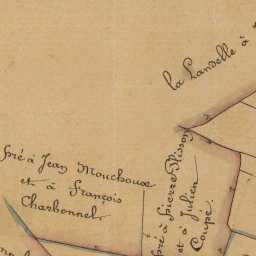 la Landelle à
Pré à Jean Mouchoux
et à François
Charbonnel.
Pré à Pierre Plisson
et à Julien
Coupé.